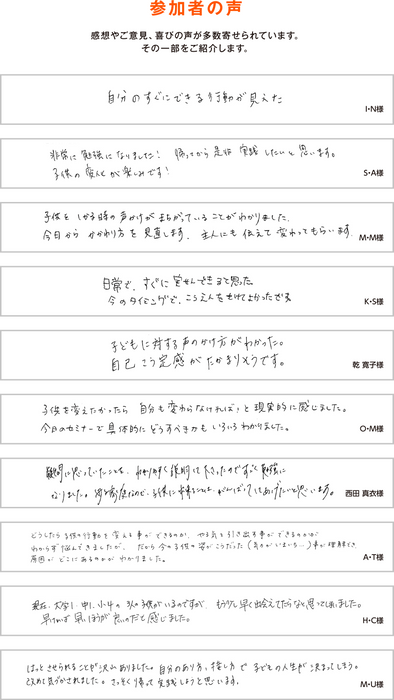 参加者の声
感想やご意見、喜びの声が多数寄せられています。
その一部をご紹介します。
自分のすぐにできる行動が見えた
I・N様
非常に勉強になりました! 帰ってから是非 実践したいと思います。
子供の変化が楽しみです!
S・A様
子供を しかる時の声かけがまちがっていることがわかりました。
今日から かかわり方を見直します。主人にも伝えて変わってもらいます。
M・M様
日常で、すぐに実せんできると思った
今のタイミングで、こうえんをきけてよかったです
K・S様
子どもに対する声のかけ方がわかった。
自己こう定感がたかまりそうです。
乾 寛子様
子供を変えたかったら 自分も変わらなければ、と現実的に感じました。
今日のセミナーで具体的にどうすべきかもいろいろわかりました。
O・M様
疑問に思っていたことを、わかりやすく説明して下さったのですごく勉強に
なりました。
西田 真衣様
どうしたら子供の行動を変える事ができるのか、やる気を引き出す事ができるのかが
わからず悩んできましたが、だから今の子供の姿がこうだった
原因がどこにあるのかがわかりました。
A・T様
現在、大学1・中1・小4の3人の子供がいるのですが、もう少し早く出会えてたらなと思ってしまいました。
早ければ早いほうが良いのだと感じました。
H・C様
はっとさせられることが沢山ありました。自分のあり方、接し方で子どもの人生が決まってしまう。
改めて気づかされました。さっそく帰って実践しようと思います。
M・U様